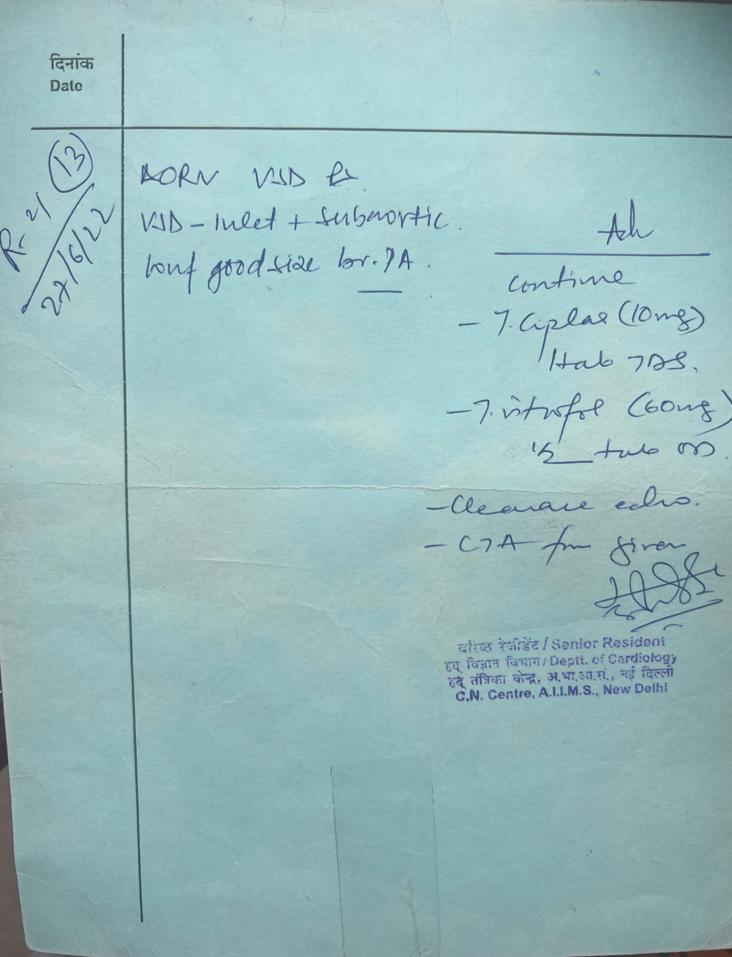 दिनांक
Date
R-21 13
27/6/22
DORV VSD PS.
VSD - Inlet + Subaortic.
good size br. PA.
Adv
Continue
- T. Ciplar (10mg)
1 tab TDS.
- T. (60mg)
1/2 tab OD.
- Clearance echo.
- CTA given
वरिष्ठ रेजीडेंट / Senior Resident
हृद् विज्ञान विभाग / Deptt. of Cardiology
हृद् तंत्रिका केन्द्र, अ.भा.आ.सं., नई दिल्ली
C.N. Centre, A.I.I.M.S., New Delhi